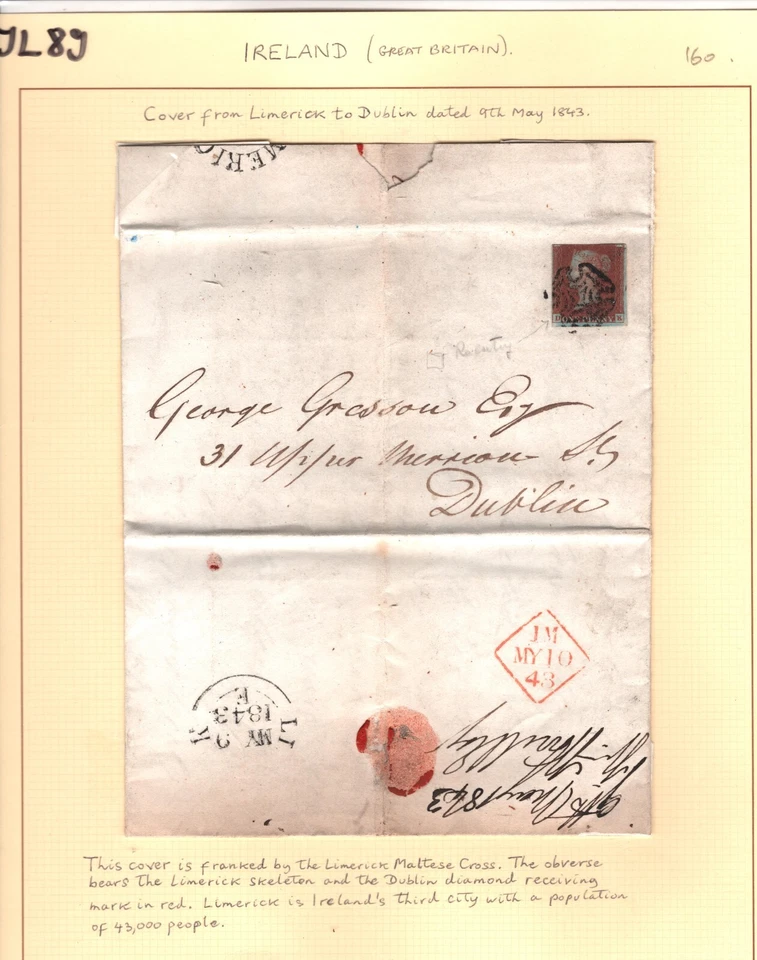 JL89
IRELAND (GREAT BRITAIN).
160.
Cover from Limerick to Dublin dated 9th May 1843.
MERIC
Re-entry
George Gresson Esq
31 Upper Merrion St
Dublin
JM
MY10
43
LI K
MY 9
1843
E
9th May 1843
This cover is franked by the Limerick Maltese Cross. The obverse
bears the Limerick skeleton and the Dublin diamond receiving
mark in red. Limerick is Ireland's third city with a population
of 43,000 people.